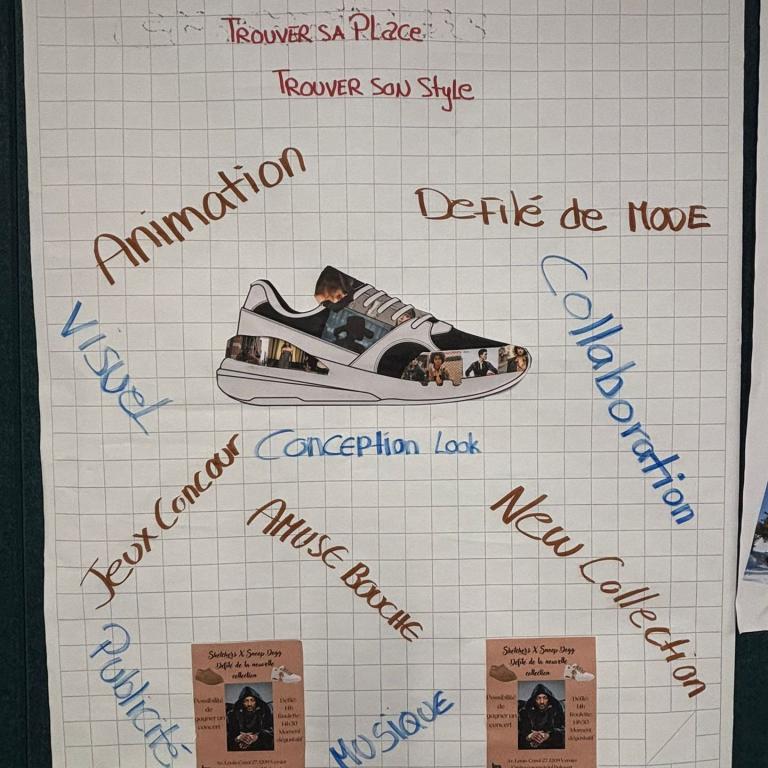 TROUVER SA PLace
TROUVER SON Style
Animation
DeFilé de MODE
Collaboration
VISUEL
CONCEPtion Look
Jeux Concour
AMUSE BOUCHE
New Collection
Publicité
MUSIQUE
Sketchers X Snoop Dogg
Defilé de la nouvelle
collection
Possibilité
de
gagner un
concert
Défilé:
14h
Roulette:
14h30
Moment
dégustatif
Sketchers X Snoop Dogg
Defilé de la nouvelle
collection
Possibilité
de
gagner un
concert
Défilé:
14h
Roulette:
14h30
Moment
dégustatif